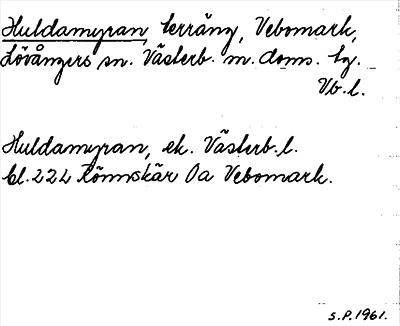 Huldamyran, terräng, Vebomark,
Lövångers sn. Västerb. m. doms. tg.
Vb. l.
Huldamyran, ek. Västerb. l.
bl. 222 Rönnskär Oa Vebomark.
S.P. 1961.